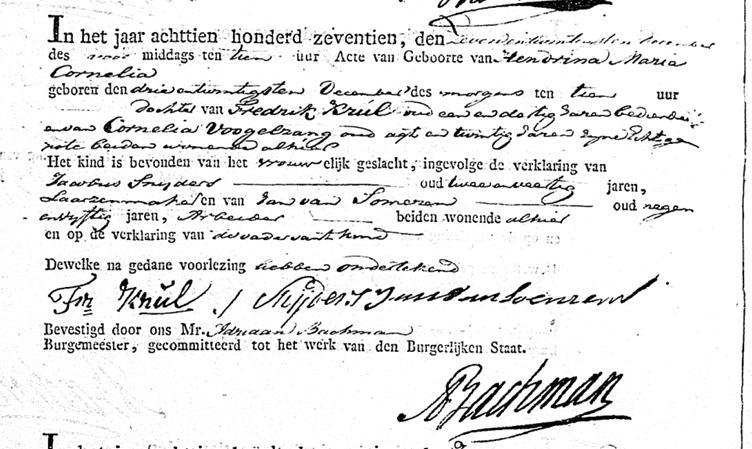 In het jaar achttien honderd zeventien, den zevenentwintigsten december
des voor middags ten tien uur Acte van Geboorte van Hendrina Maria
Cornelia
geboren den drie entwintigsten December des morgens ten tien uur
dochter van Fredrik Krúl oud een en dertig Jaren bediende
en van Cornelia Voogelzang oud agt en twintig Jaren zyne Echtge
note beiden wonende alhier
Het kind is bevonden van het vrouwelijk geslacht, ingevolge de verklaring van
Jacobus Snijders oud twee en veertig jaren,
Laarzenmaker en van Jan van Someren oud negen
en vyftig jaren, Arbeider beiden wonende alhier
en op de verklaring van de vader van 't kind
Dewelke na gedane voorlezing hebben ondertekend
Fr Krúl / Snijders Jan van Soemeren
Bevestigd door ons Mr. Adriaan Bachman
Burgemeester, gecommitteerd tot het werk van den Burgerlijken Staat.
ABachman